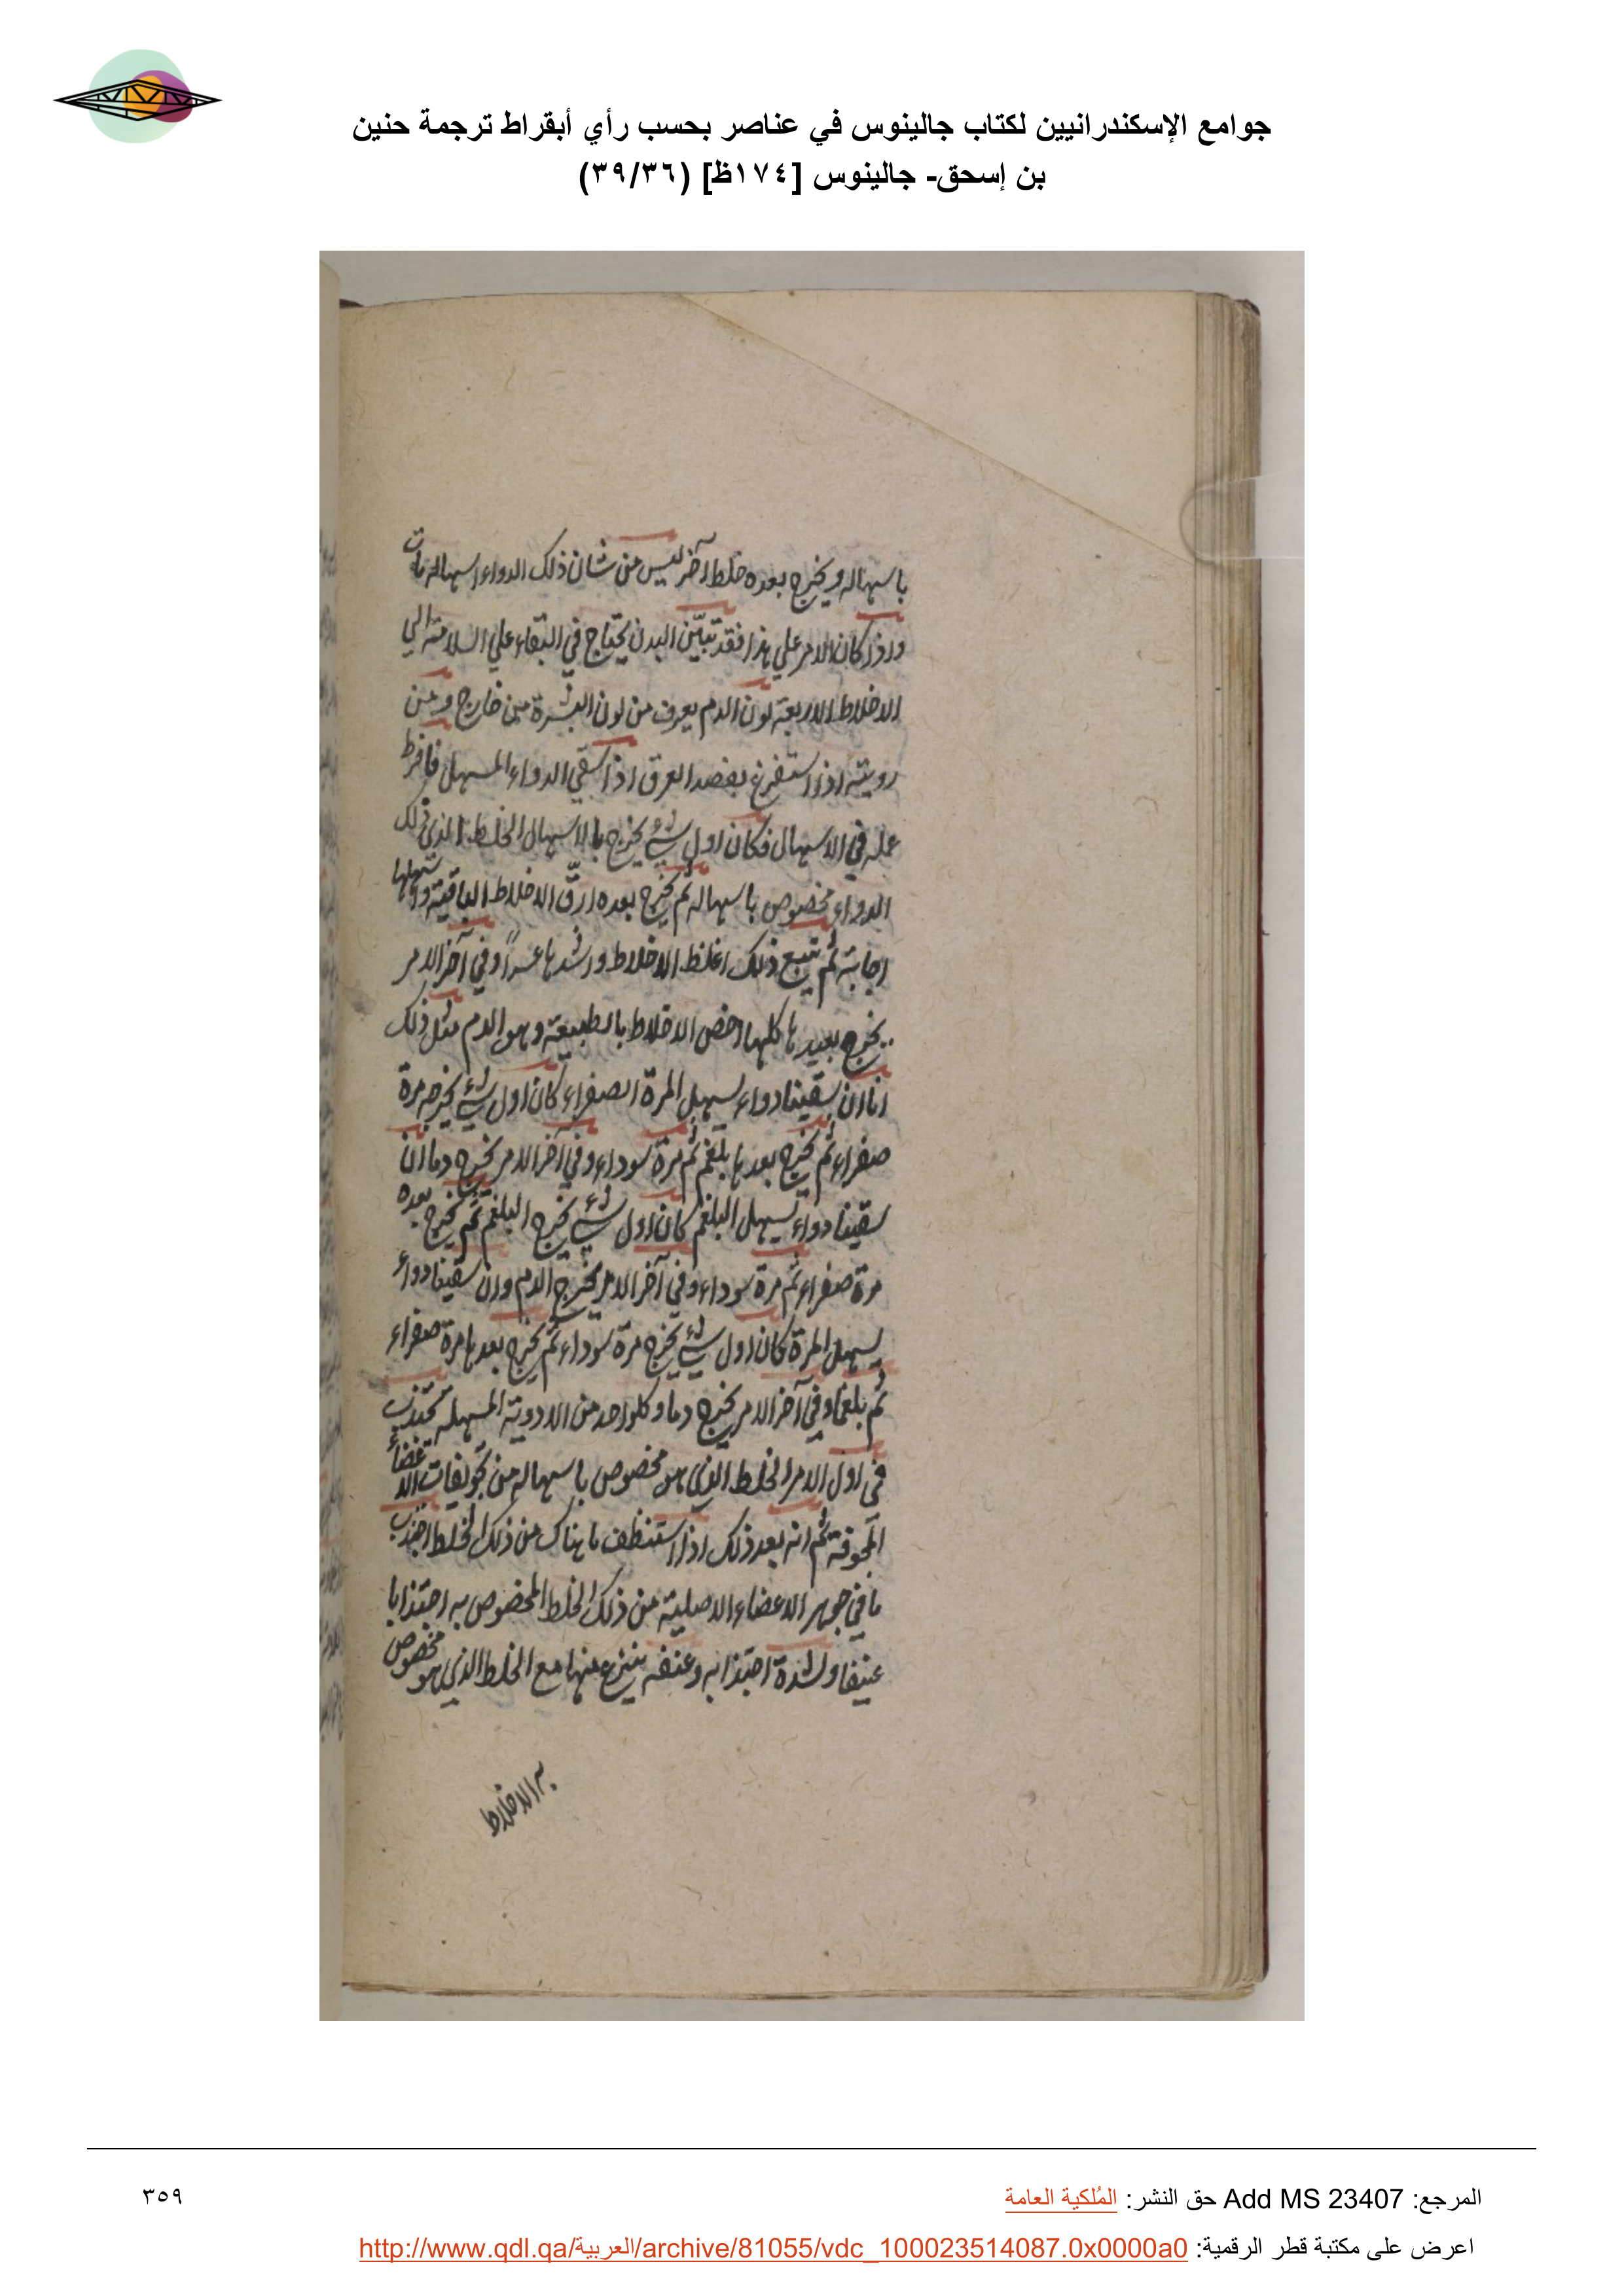 جوامع الإسكندرانيين لكتاب جالينوس في عناصر بحسب رأي أبقراط ترجمة حنين
بن إسحق- جالينوس [١٧٤ظ] (٣٩/٣٦)
باسهاله ويخرج بعده خلط آخر ليس من شان ذلك الدواء اسهاله مات
واذا كان الامر علي هذا فقد تبيّن البدن يحتاج في البقاء علي السلامة الي
الاخلاط الاربعة لون الدم يعرف من لون البشرة من خارج ومن
رويته اذا استفرغ بفصد العرق اذا سقي الدواء المسهل فافرط
عمله في الاسهال فكان اول شيء يخرج بالاسهال الخلط الذي ذلك
الدواء مخصوص باسهاله ثم يخرج بعده ارقّ الاخلاط الباقية واسهلها
اجابة ثم يتبع ذلك اغلظ الاخلاط واشدها عسراً وفي آخر الامر
يخرج بعدها كلها اخص الاخلاط بالطبيعة وهو الدم مثل ذلك
انا ان سقينا دواء يسهل المرة الصفراء كان اول شيء يخرج مرة
صفراء ثم يخرج بعدها بلغم ثم مرة سوداء وفي آخر الامر يخرج دما ان
سقينا دواء يسهل البلغم كان اول شيء يخرج البلغم ثم يخرج بعده
مرة صفراء ثم مرة سوداء وفي آخر الامر يخرج الدم وان سقينا دواء
يسهل المرة كان اول شيء يخرج مرة سوداء ثم يخرج بعدها مرة صفراء
ثم بلغما وفي آخر الامر يخرج دما وكلواحد من الادوية المسهلة يجتذب
في اول الامر الخلط الذي هو مخصوص باسهاله من تجويفات الاعضاء
المجوفة ثم انه بعد ذلك اذا استنظف ما هناك من ذلك الخلط اجتذب
ما في جوهر الاعضاء الاصلية من ذلك الخلط المخصوص به اجتذابا
عنيفا ولشدة اجتذابه وعنفه ينزع منها مع الخلط الذي هو مخصوص
به الاخلاط
المرجع: Add MS 23407 حق النشر: المُلكية العامة
٣٥٩
اعرض على مكتبة قطر الرقمية: http://www.qdl.qa/العربية/archive/81055/vdc_100023514087.0x0000a0